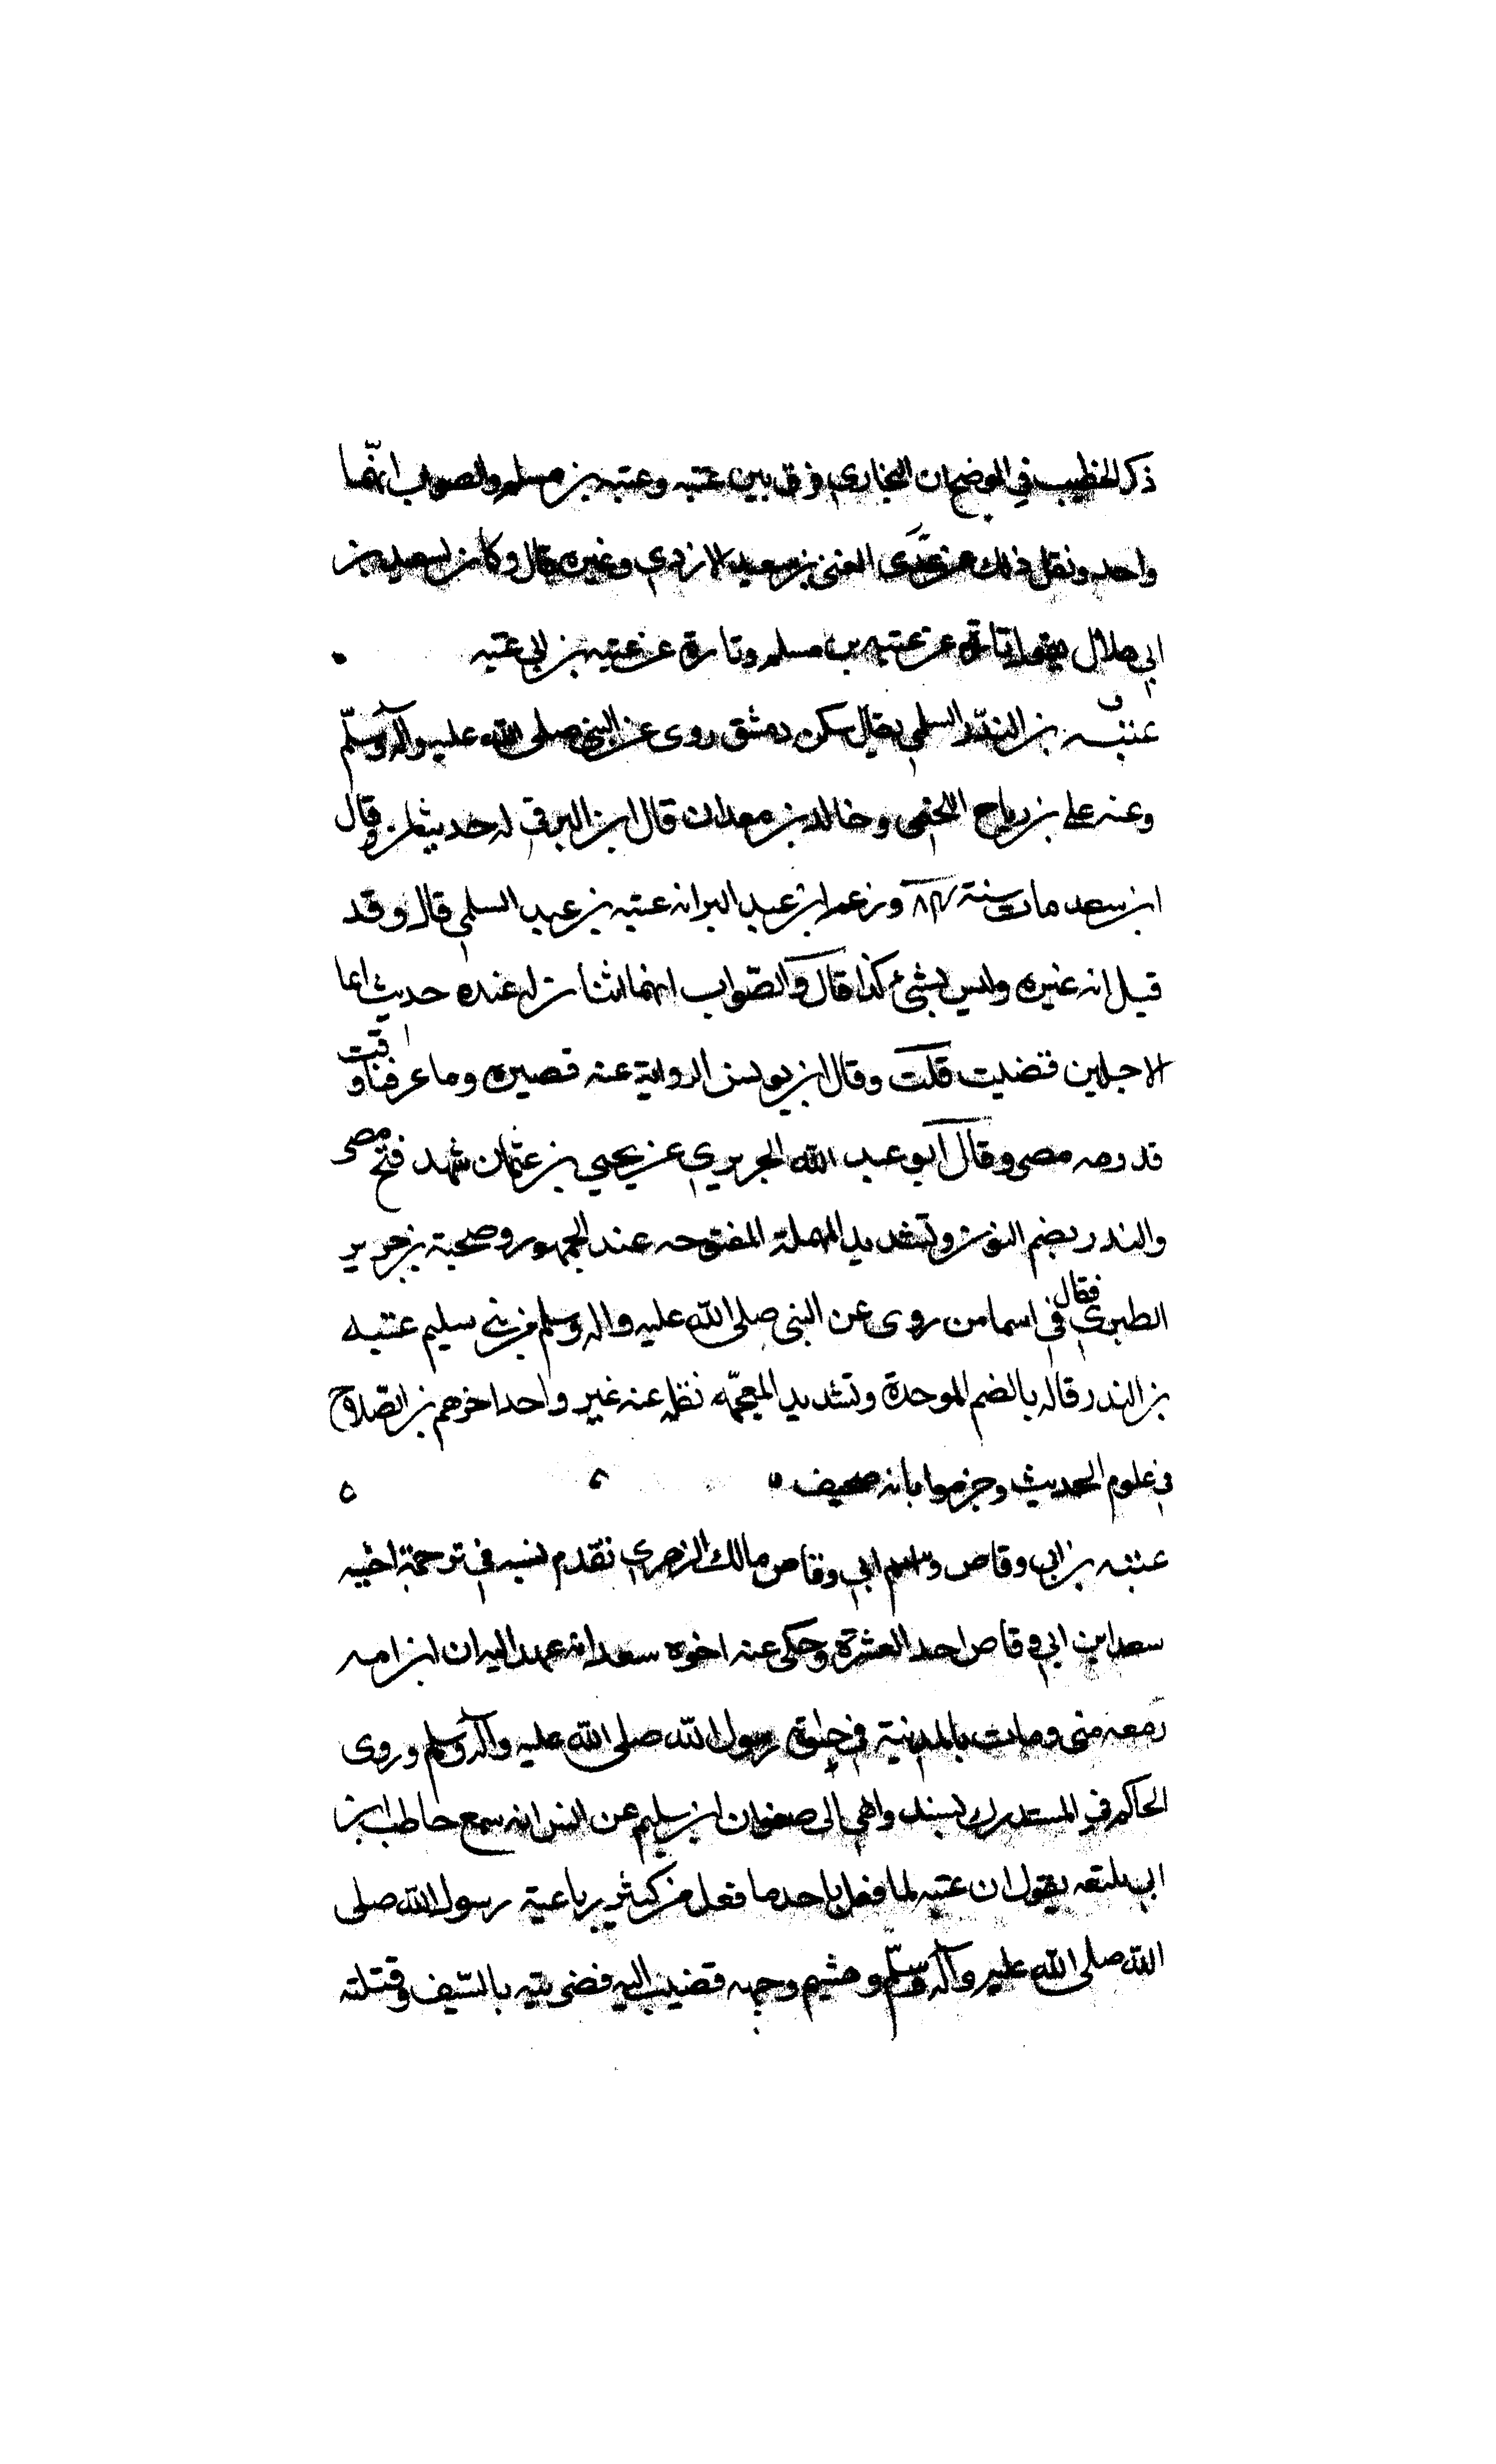 ذكر الخطيب في الموضح ان البخاري فرق بين عتبه وعتبه بن مسلم والصواب انهّما
واحد ونقل ذلك عن عبد الغني بن سعيد الازدي وغيره قال وكان سعيد بن
ابي هلال يقول تارة عن عتبه بن مسلم وتارة عن عتبه بن ابي عتبه
عتبه بن الندّر السلمي يقال سكن دمشق روى عن النبي صلى الله عليه وآله وسلّم
وعنه علي بن رباح اللخمي وخالد بن معدان قال ابن البرقي له حديثان وقال
ابن سعد مات سنة ٨٤ وزعم ابن عبد البر انه عتبه بن عبد السلمي قال وقد
قيل انه غيره وليس بشئ كذا قال والصّواب انهما اثنان له عنده حديث ايما
الاجلين قضيت قلت وقال ابن يونس الرواية عنه قصيره وما عرفنا وقت
قدومه مصر وقال ابو عبد الله الجريري عن يحيى بن عثمان شهد فتح مصر
والندر بضم النون وتشديد المهملة المفتوحه عند الجمهور وصحبة بن جرير
الطبري فقال في اسما من روى عن النبى صلى الله عليه واله وسلم من بني سليم عتبه
بن البذر قاله بالضم الموحدة وتشديد المعجّمه نقله عنه غير واحد اخرهم بن الصّلاح
في علوم الحديث وجزموا بانه صحيف
عتبه بن ابي وقاص واسم ابي وقاص مالك الزهري تقدم نسبه في ترجمة اخيه
سعد ابن ابي وقاص احد العشرة وحكى عنه اخوه سعد انه عهد اليه ان ابن امه
زمعه منى ومات بالمدينة في حياة رسول الله صلى الله عليه وآله وسلم وروى
الحاكم في المستدرك بسند واهي الى صفوان ابن سليم عن انس انه سمع حاطب ابن
ابي بلتعه يقول ان عتبه لما فعل باحد ما فعل من كسر رباعية رسول الله صلى
الله صلى الله عليه وآله وسلّم وهشيم وجهه قضيب اليه فضربته بالسّيف فقتلته